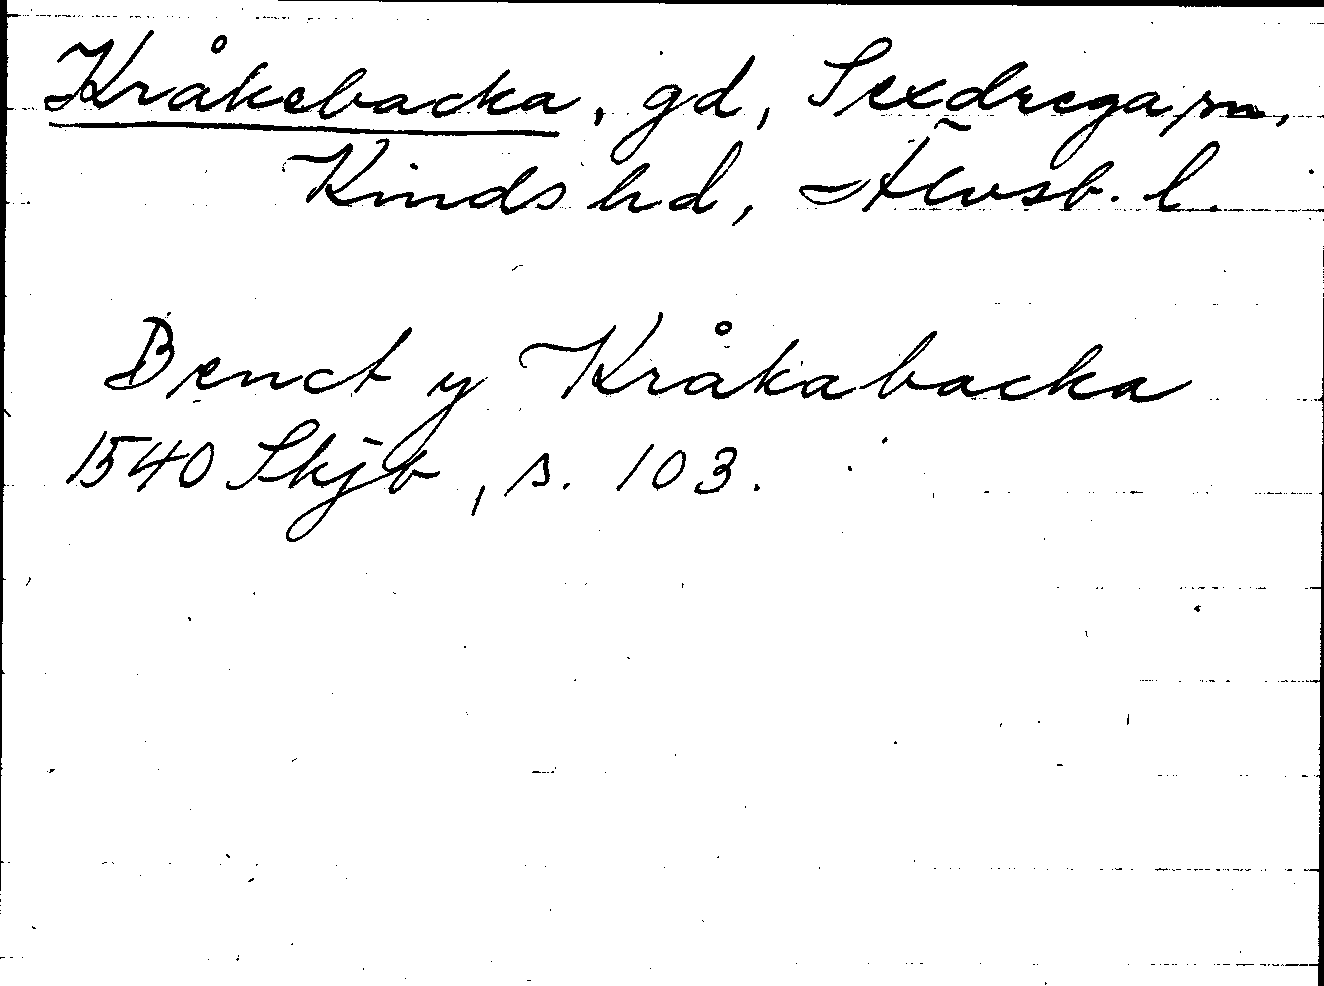 Kråkebacka, gd, Sexdrega sn,
Kinds hd, Älvsb. l.
Benct y Kråkabacka
1540 Skjb, s. 103.